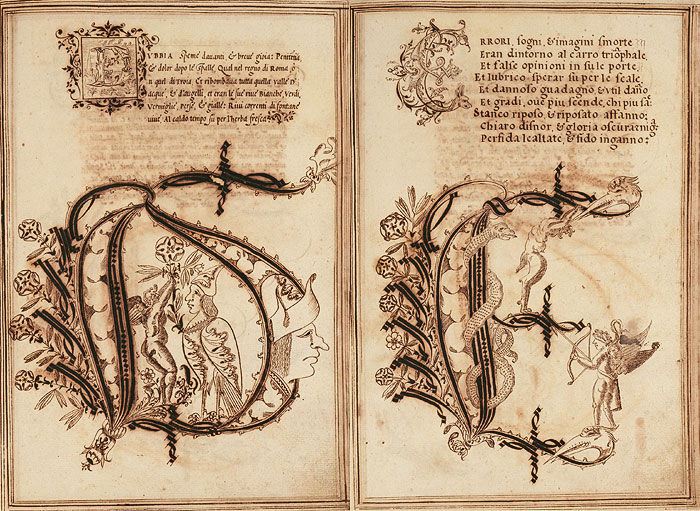 DVBBIA Speme dauanti & breue gioia: Penitẽtia
& dolor dopo le spalle. Qual nel regno di Roma, o
in quel di Troia. Et ribombaua tutta quella valle D'
acque, & d'augelli, et eran le sue riue Bianche, Verdi,
Vermiglie, perse, & gialle: Riui correnti di fontane
viue Al caldo tempo su per l'herba fresca
ERRORI, sogni, & imagini smorte
Eran dintorno al carro triõphale,
Et false opinioni in su le porte,
Et lubrico sperar su per le scale,
Et dannoso guadagno, & vtil dãno
Et gradi, oue piu scende, chi piu
Stanco riposo, & riposato affanno:
Chiaro disnor, & gloria oscura
Perfida lealtate, & fido inganno: